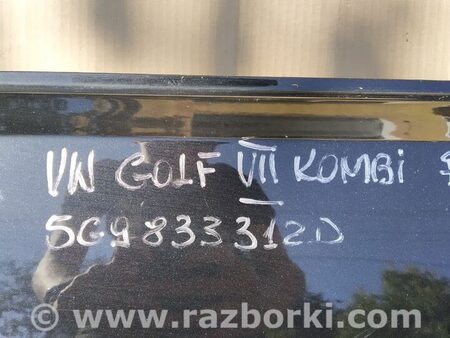 VW GOLF VII KOMBi
5G9833312D
© www.razborki.com